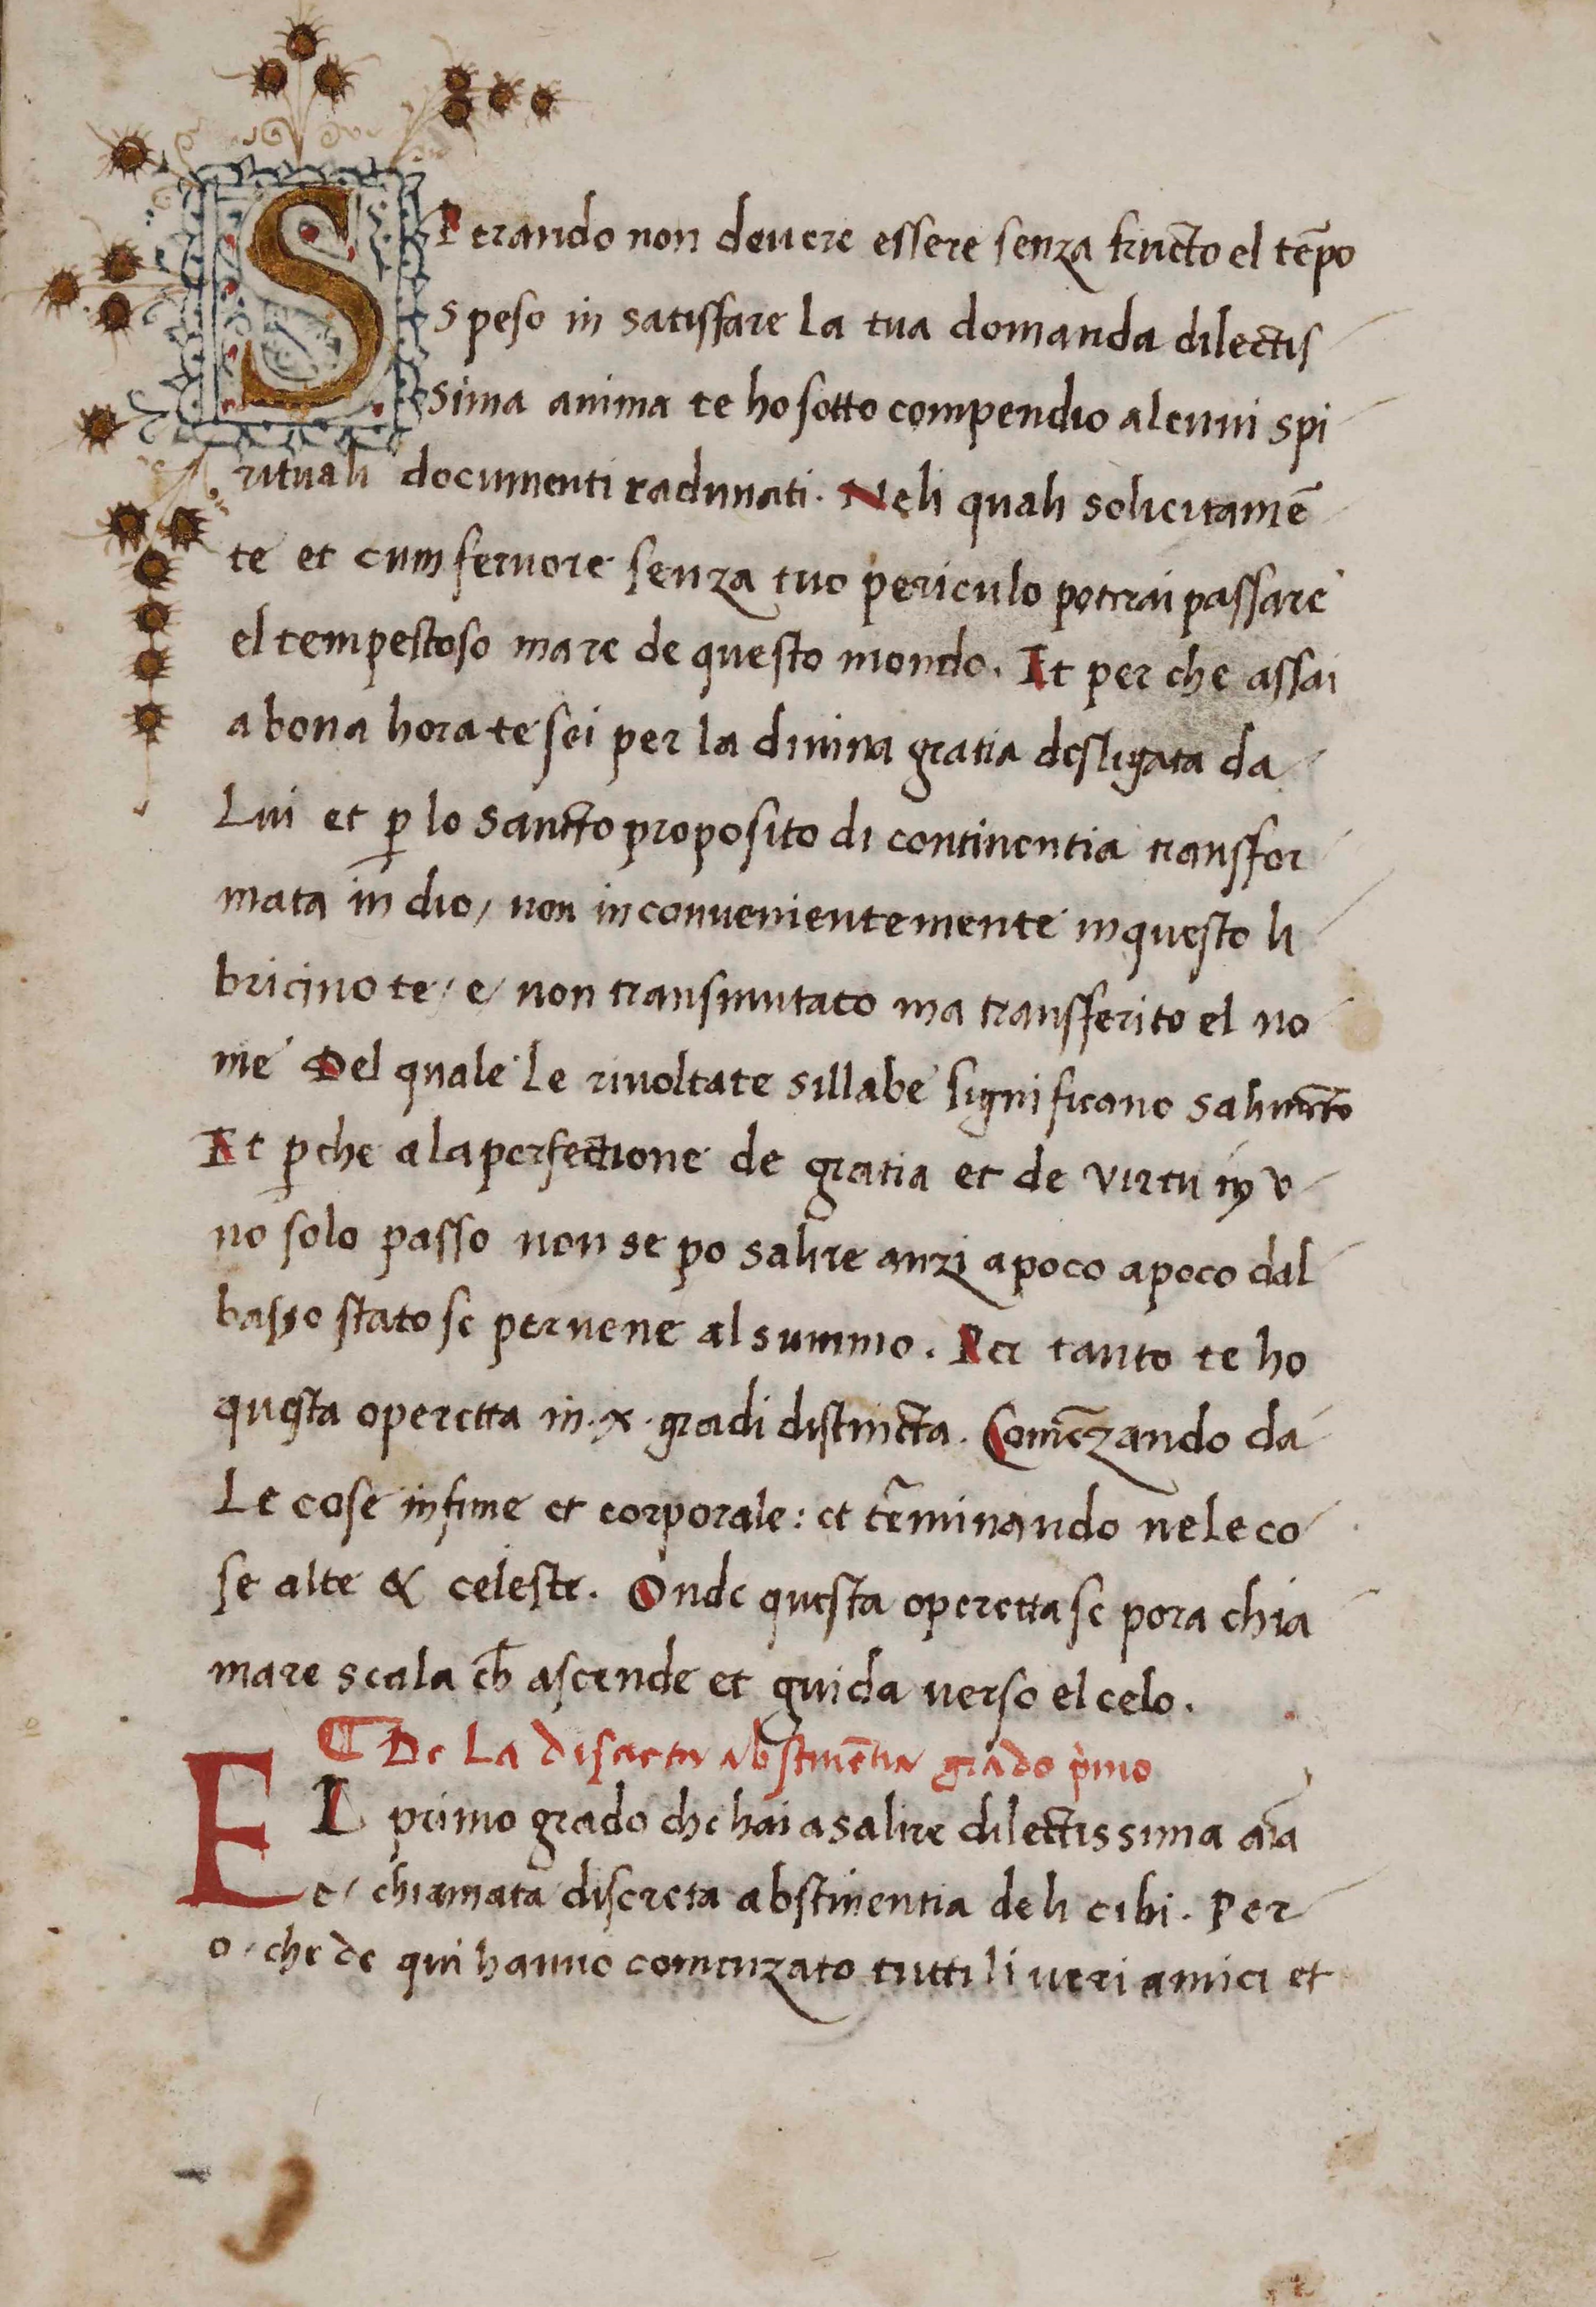 SPerando non deuere essere senza fructo el tēpo
speso in satisfare la tua domanda dilectis
sima anima te ho sotto compendio alcuni spi
rituali documenti radunati. Neli quali solicitamē
te et cum feruore senza tuo periculo potrai passare
el tempestoso mare de questo mondo. Et per che assai
a bona hora te sei per la diuina gratia desligata da
Lui et ꝑ lo sancto proposito di continentia transfor
mata in dio, non inconuenientemente in questo li
bricino te / e / non transmutato ma transferito el no
me Del quale le riuoltate sillabe significano
Et ꝑche a la perfectione de gratia et de virtu in v
no solo passo non se po salire anzi a poco a poco dal
basso stato se peruene al summo. Per tanto te ho
questa operetta in .x. gradi distincta. Comēzando da
Le cose infime et corporale: et tēminando nele co
se alte & celeste. Onde questa operetta se pora chia
mare scala cħ ascende et guida verso el celo.
¶ De La discreta abstinētia grado p̍mo
EL primo grado che hai a salire dilectissima aīa
e / chiamata discreta abstinentia deli cibi. Per
o / che de qui hanno comenzato tutti li ueri amici et